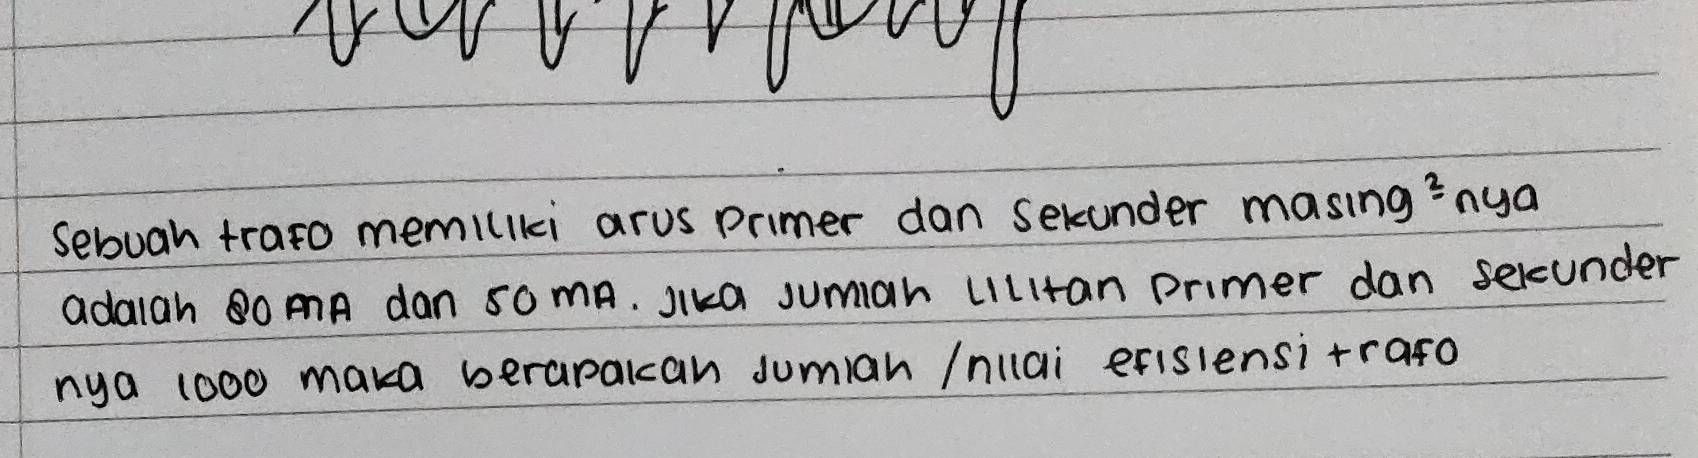 Sebuah trafo memiliki arus primer dan sekunder masing²nya
adalah 80 mA dan 50 mA. Jika jumlah lilitan primer dan sekunder
nya 1000 maka berapakah jumlah /nilai efisiensi trafo